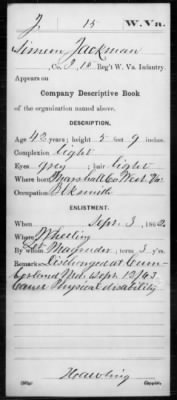 J 15 W.Va.
Simeon Jackman
Co. I, 15 Reg't W. Va. Infantry.
Appears on
Company Descriptive Book
of the organization named above.
DESCRIPTION.
Age 42 years; height 5 feet 9 inches.
Complexion Light
Eyes grey; hair Light
Where born Marshall Co West Va
Occupation Blksmith
ENLISTMENT.
When Sept. 3, 1862.
Where Wheeling
By whom Lt. Magruder; term 3 y'rs.
Remarks: Discharged at Cum-
berland Md. Sept. 12/63
Cause Physical disability
Copyist.